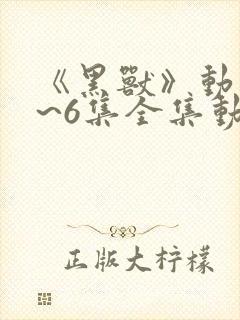 《黑獸》動
~6集全集動
正版大柠檬